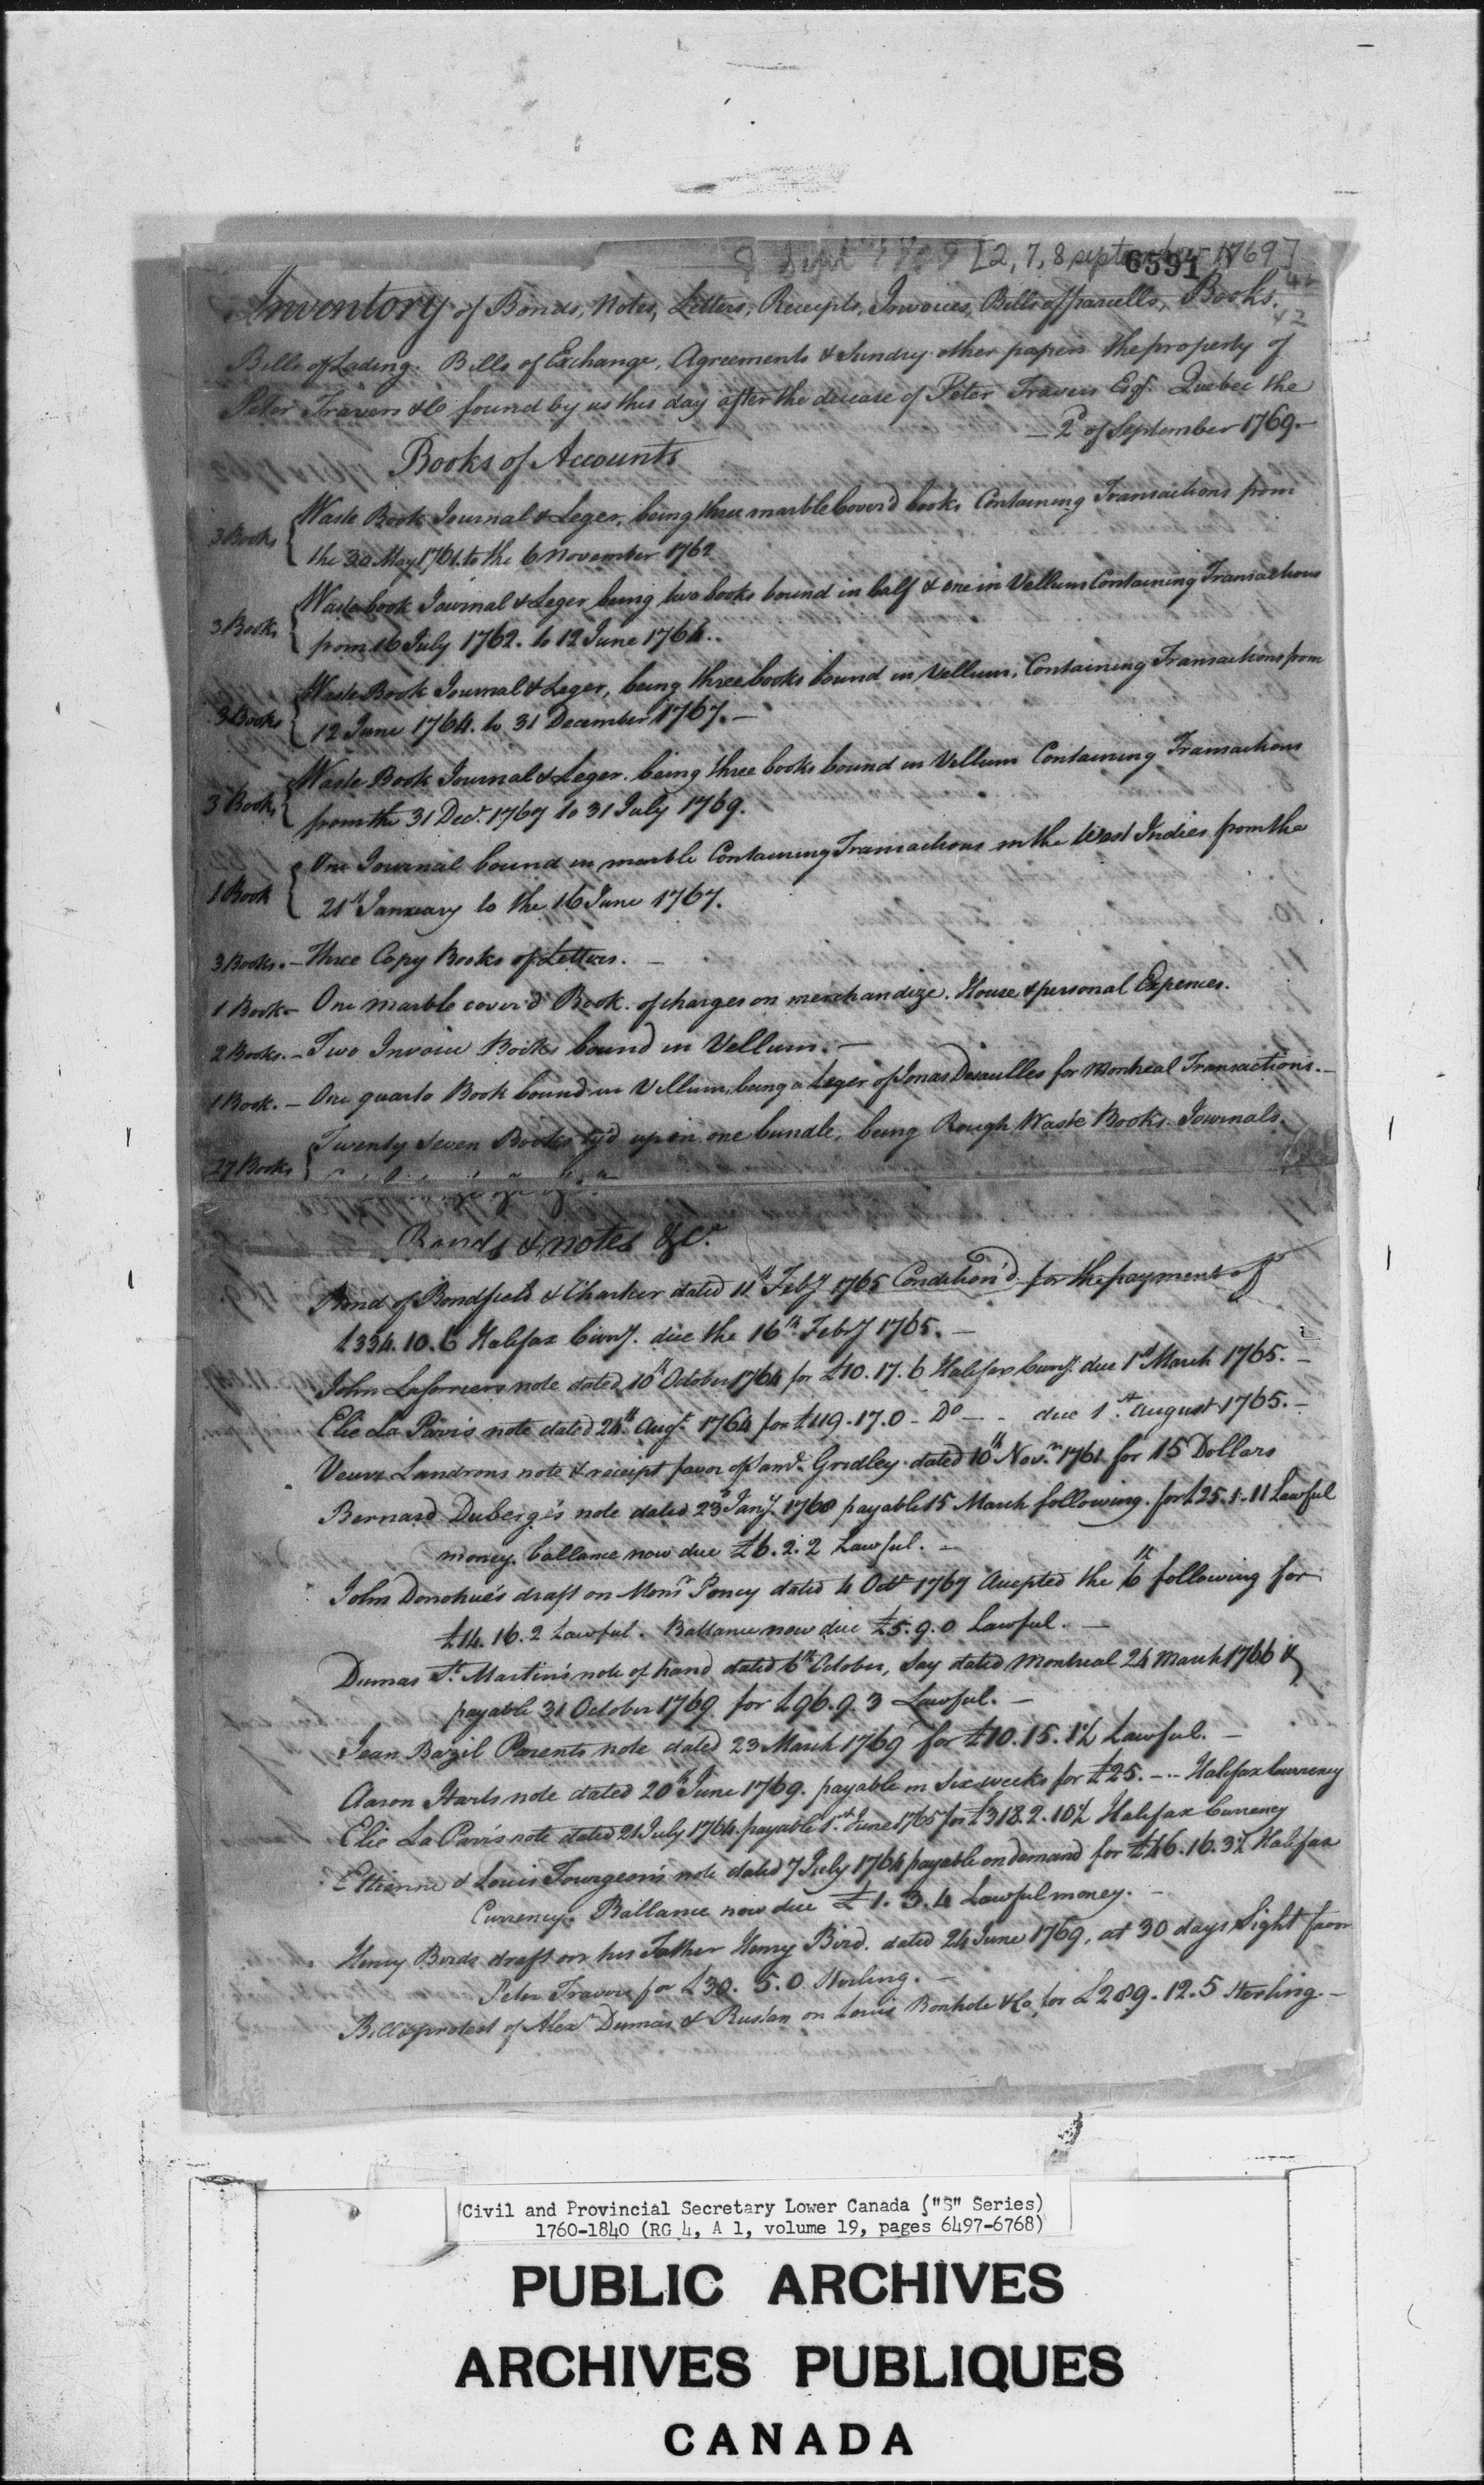 [2, 7, 8 september 1769]
6591
Inventory of Bonds, Notes, Letters, Receipts, Invoices, Bills of parcells, Books.
Bills of Lading. Bills of Exchange, Agreements & Sundry other papers the property of
Peter Travers & Co found by us this day after the decease of Peter Travers Esqr. Quebec the
— 2d of September 1769.—
Books of Accounts
3 Books { Waste Book Journal & Leger, being three marble Cover'd books Containing Transactions from
the 30 May 1761. to the 6 November 1762
3 Books { Waste book Journal & Leger being two books bound in half & one in Vellum Containing Transactions
from 16 July 1762. to 12 June 1764..
3 Books { Waste Book Journal & Leger, being three books bound in Vellum, Containing Transactions from
12 June 1764. to 31 December 1767.—
3 Books { Waste Book Journal & Leger. being three books bound in Vellum Containing Transactions
from the 31 Decr. 1767 to 31 July 1769.
1 Book { One Journal bound in marble Containing Transactions in the West Indies from the
21st January to the 16 June 1767.
3 Books. – Three Copy Books of Letters. —
1 Book – One marble cover'd Book of charges on merchandize. House & personal Expences.
2 Books. – Two Invoice Books bound in Vellum. —
1 Book. – One quarto Book bound in Vellum, being a Leger of Jonas Desaulles for Montreal Transactions.—
27 Books { Twenty Seven Books ty'd up in one bundle, being Rough Waste Books Journals.
Bonds & notes &ca.
Bond of Bondfield & Charker dated 11th Feby 1765 Condition'd for the payment of
£334.10.6 Halifax Curry. due the 16th Feby 1765. —
John Laforners note dated 10th October 1764 for £10.17.6 Halifax Curry. due 1st March 1765. —
Elie La Parris note dated 24th Augt. 1764 for £119.17.0 – Do — - due 1st. August 1765. —
Veuve Landrons note & receipt favor of Saml. Gridley dated 10th Novr. 1761 for 15 Dollars
Bernard Duberge's note dated 23d Jany. 1768 payable 15 March following. for £25.1.11 Lawful
money. ballance now due £6.2.2 Lawful. —
John Donohue's draft on Monsr Poncy dated 4 Octr 1767 Accepted the 6th following for
£14.16.2 Lawful. Ballance now due £5.9.0 Lawful. —
Dumas St. Martin's note of hand dated 6th October, Say dated Montreal 24 March 1766 &
payable 31 October 1769 for £96.9.3 Lawful. —
Jean Bazil Parents note dated 23 March 1769 for £10.15.1½ Lawful. —
Aaron Harts note dated 20th June 1769. payable in Six weeks for £25. – - Halifax Currency
Elie La Parris note dated 21 July 1764. payable 1st. June 1765 for £318.2.10½ Halifax Currency
Ettienne & Louis Tourgeon's note dated 7 July 1764 payable on demand for £46.16.3½ Halifax
Currency. Ballance now due £1.3.4 Lawful money. —
Henry Birds draft on his Father Henry Bird. dated 24 June 1769, at 30 days Sight favor
Peter Travers for £30.5.0 Sterling. —
Bill & protest of Alexr Dumas & Rustan on Louis Bonhole & Co, for £289.12.5 Sterling. —
Civil and Provincial Secretary Lower Canada ("S" Series)
1760-1840 (RG 4, A 1, volume 19, pages 6497-6768)
PUBLIC ARCHIVES
ARCHIVES PUBLIQUES
CANADA